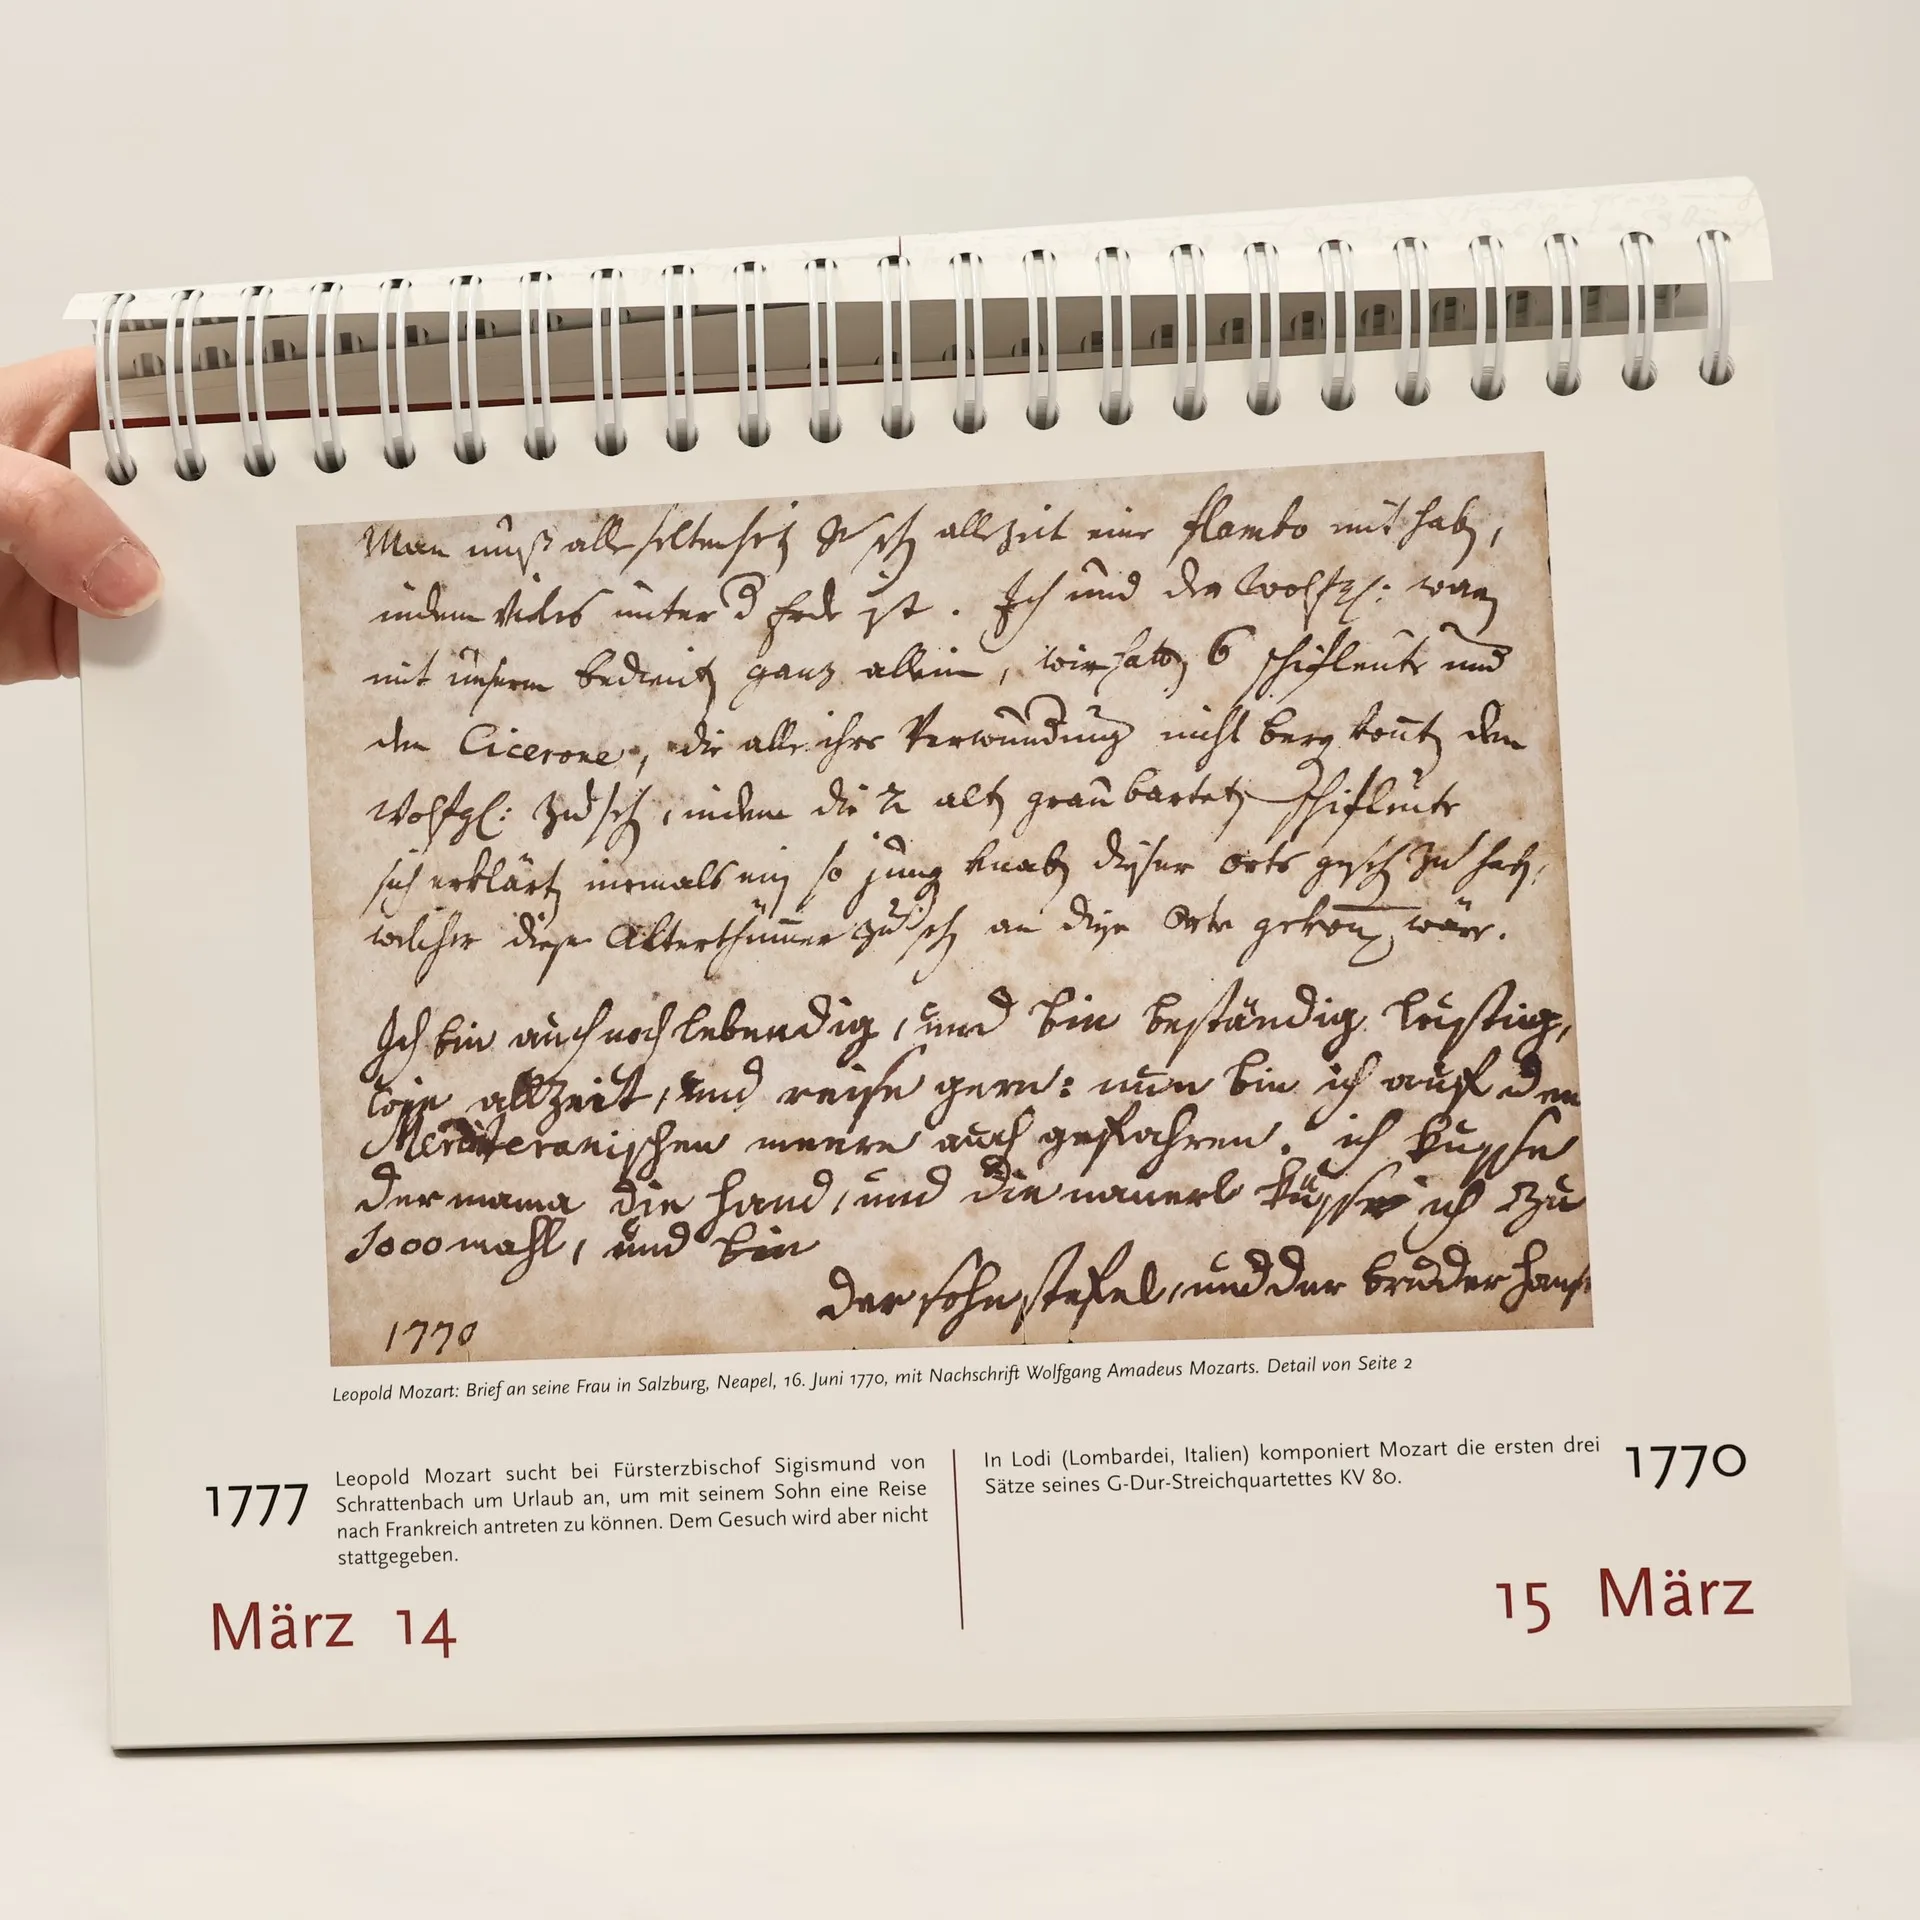 Man muß alle seltenheit zu sehen allezeit eine flambo mit habn,
indem Vieles unter d Erde ist. Ich und der Wolfg: warn
mit unserm bedientn ganz allein, wir hattn 6 schifleute und
den Cicerone, die alle ihre Verwundung nicht berg konntn den
Wolfgl: zu sehn, indem die 2 altn grau bartetn schifleute
sich erklärtn niemals ein so jung knabn dieser Orts gesehn zu habn,
welcher diese Alterthümmer zu sehn an diese Orte gekomn wäre.
Ich bin auch noch lebendig, und bin beständig lustig,
wie allzeit, und reise gern: nun bin ich auf den
Mediteranischen meere auch gefahren. ich küsse
der mama die hand, und die nanerl küsse ich zu
1000 mahl, und bin
der sohn stefel, und der bruder hans
1770
Leopold Mozart: Brief an seine Frau in Salzburg, Neapel, 16. Juni 1770, mit Nachschrift Wolfgang Amadeus Mozarts. Detail von Seite 2
1777
Leopold Mozart sucht bei Fürsterzbischof Sigismund von
Schrattenbach um Urlaub an, um mit seinem Sohn eine Reise
nach Frankreich antreten zu können. Dem Gesuch wird aber nicht
stattgegeben.
März 14
In Lodi (Lombardei, Italien) komponiert Mozart die ersten drei
Sätze seines G-Dur-Streichquartettes KV 80.
1770
15 März